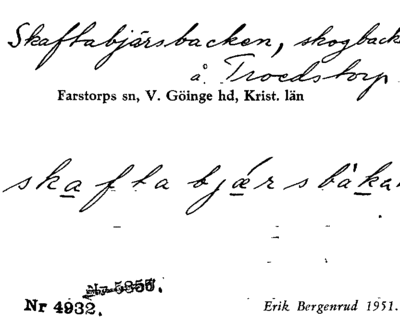 Skaftabjärsbacken, skogbacke
å Troedstorp.
Farstorps sn, V. Göinge hd, Krist. län
skafta bjærsbakan
Nr 4932.
Erik Bergenrud 1951.